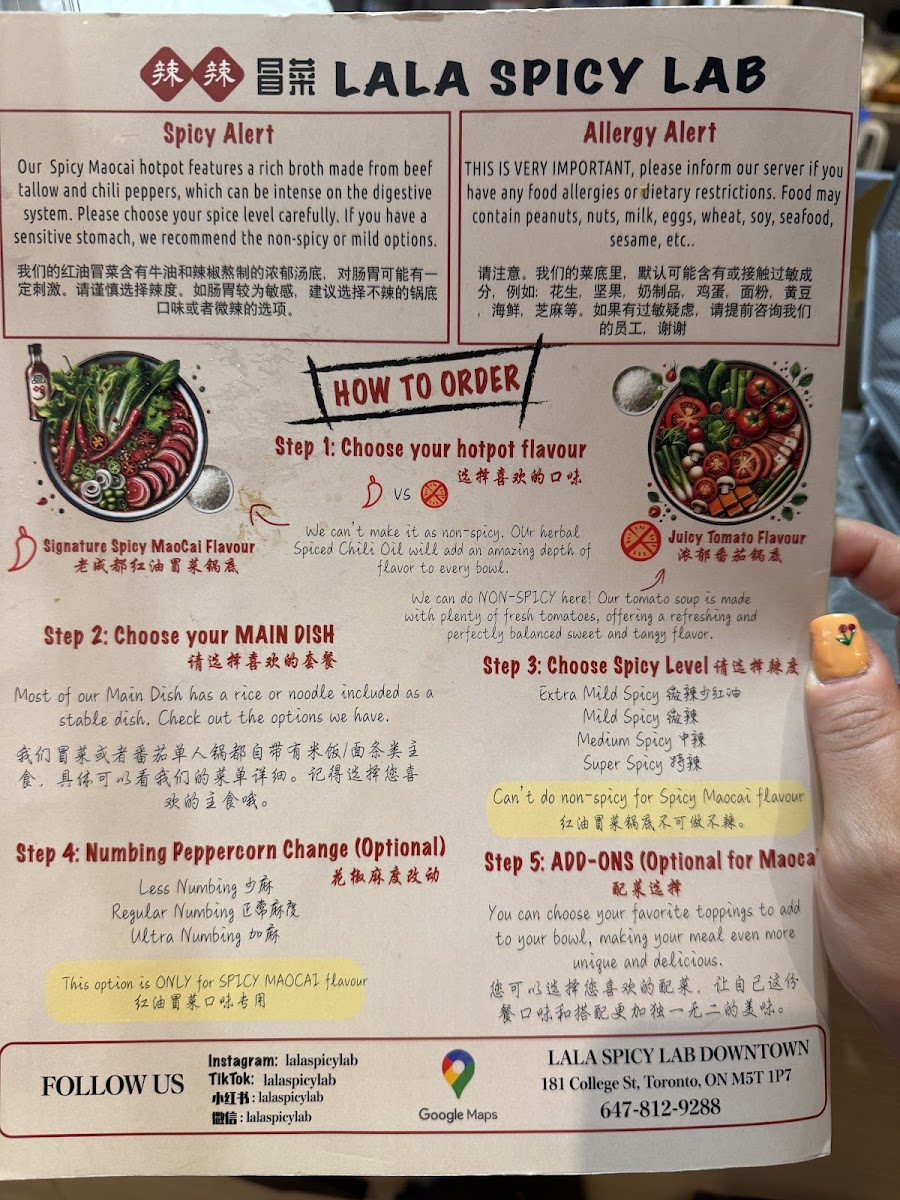 辣 辣 冒菜 LALA SPICY LAB
Spicy Alert
Our Spicy Maocai hotpot features a rich broth made from beef
tallow and chili peppers, which can be intense on the digestive
system. Please choose your spice level carefully. If you have a
sensitive stomach, we recommend the non-spicy or mild options.
我们的红油冒菜含有牛油和辣椒熬制的浓郁汤底，对肠胃可能有一
定刺激。请谨慎选择辣度。如肠胃较为敏感，建议选择不辣的锅底
口味或者微辣的选项。
Allergy Alert
THIS IS VERY IMPORTANT, please inform our server if you
have any food allergies or dietary restrictions. Food may
contain peanuts, nuts, milk, eggs, wheat, soy, seafood,
sesame, etc..
请注意。我们的菜底里，默认可能含有或接触过敏成
分，例如：花生，坚果，奶制品，鸡蛋，面粉，黄豆
，海鲜，芝麻等。如果有过敏疑虑，请提前咨询我们
的员工，谢谢
HOW TO ORDER
Step 1: Choose your hotpot flavour
选择喜欢的口味
VS
We can't make it as non-spicy. OUr herbal
Spiced Chili Oil will add an amazing depth of
flavor to every bowl.
Signature Spicy MaoCai Flavour
老成都红油冒菜锅底
Juicy Tomato Flavour
浓郁番茄锅底
We can do NON-SPICY here! Our tomato soup is made
with plenty of fresh tomatoes, offering a refreshing and
perfectly balanced sweet and tangy flavor.
Step 2: Choose your MAIN DISH
请选择喜欢的套餐
Most of our Main Dish has a rice or noodle included as a
stable dish. Check out the options we have.
我们冒菜或者番茄单人锅都自带有米饭/面条类主
食，具体可以看我们的菜单详细。记得选择您喜
欢的主食哦。
Step 3: Choose Spicy Level 请选择辣度
Extra Mild Spicy 微辣少红油
Mild Spicy 微辣
Medium Spicy 中辣
Super Spicy 特辣
Can't do non-spicy for Spicy Maocai flavour
红油冒菜锅底不可做不辣。
Step 4: Numbing Peppercorn Change (Optional)
花椒麻度改动
Less Numbing 少麻
Regular Numbing 正常麻度
Ultra Numbing 加麻
This option is ONLY for SPICY MAOCAI flavour
红油冒菜口味专用
Step 5: ADD-ONS (Optional for Maoca
配菜选择
You can choose your favorite toppings to add
to your bowl, making your meal even more
unique and delicious.
您可以选择您喜欢的配菜，让自己这份
餐口味和搭配更加独一无二的美味。
FOLLOW US
Instagram: lalaspicylab
TikTok: lalaspicylab
小红书: lalaspicylab
微信: lalaspicylab
Google Maps
LALA SPICY LAB DOWNTOWN
181 College St, Toronto, ON M5T 1P7
647-812-9288